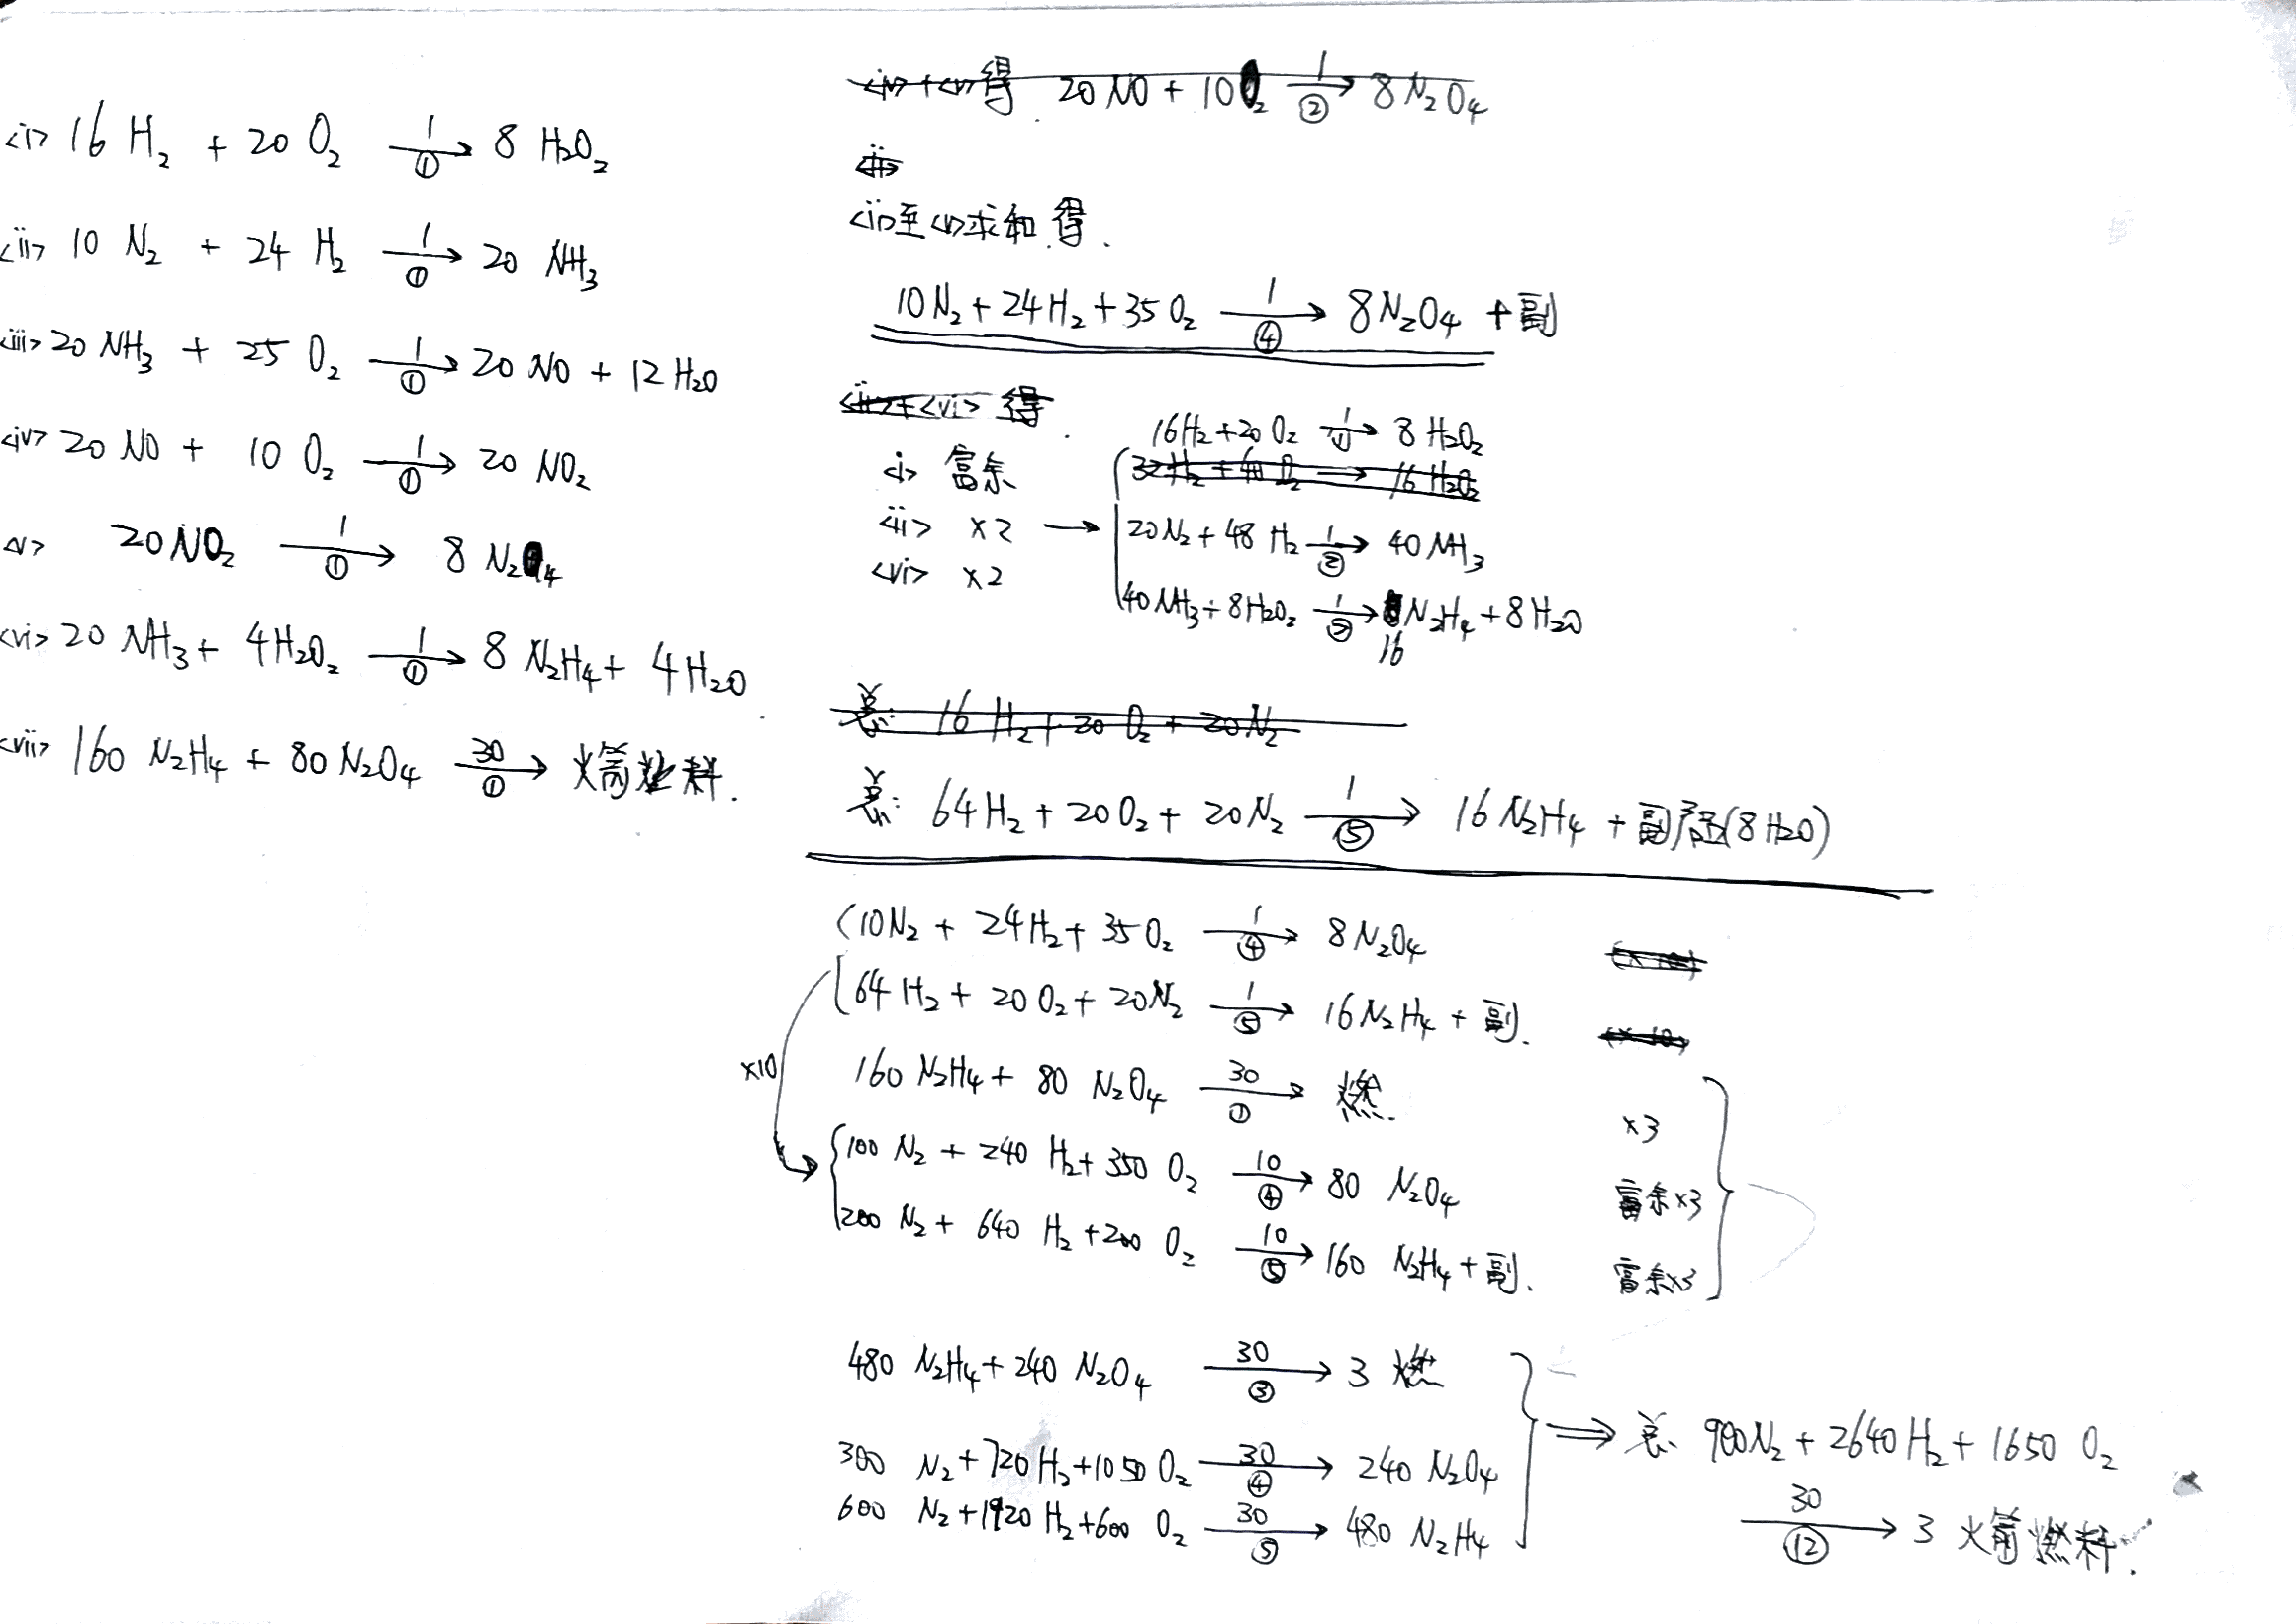 <i> 16 H₂ + 20 O₂ —1/①→ 8 H₂O₂
<ii> 10 N₂ + 24 H₂ —1/①→ 20 NH₃
<iii> 20 NH₃ + 25 O₂ —1/①→ 20 NO + 12 H₂O
<iv> 20 NO + 10 O₂ —1/①→ 20 NO₂
<v> 20 NO₂ —1/①→ 8 N₂O₄
<vi> 20 NH₃ + 4 H₂O₂ —1/①→ 8 N₂H₄ + 4 H₂O
<vii> 160 N₂H₄ + 80 N₂O₄ —30/①→ 火箭燃料.
<iv>+<v>得 20 NO + 10 O₂ —1/②→ 8 N₂O₄
<ii>
<ii>至<v>求和得.
10 N₂ + 24 H₂ + 35 O₂ —1/④→ 8 N₂O₄ + 副
<ii>+<vi> 得.
<i> 富余
<ii> ×2 →
<vi> ×2
16 H₂ + 20 O₂ —1/①→ 8 H₂O₂
32 H₂ + 40 O₂ → 16 H₂O₂
20 N₂ + 48 H₂ —1/②→ 40 NH₃
40 NH₃ + 8 H₂O₂ —1/②→ 16 N₂H₄ + 8 H₂O
总: 16 H₂ + 20 O₂ + 20 N₂
总: 64 H₂ + 20 O₂ + 20 N₂ —1/⑤→ 16 N₂H₄ + 副产品(8 H₂O)
10 N₂ + 24 H₂ + 35 O₂ —1/④→ 8 N₂O₄
64 H₂ + 20 O₂ + 20 N₂ —1/⑤→ 16 N₂H₄ + 副.
×10
160 N₂H₄ + 80 N₂O₄ —30/①→ 燃. ×3
100 N₂ + 240 H₂ + 350 O₂ —10/④→ 80 N₂O₄ 富余×3
200 N₂ + 640 H₂ + 200 O₂ —10/⑤→ 160 N₂H₄ + 副. 富余×3
480 N₂H₄ + 240 N₂O₄ —30/③→ 3 燃
300 N₂ + 720 H₂ + 1050 O₂ —30/④→ 240 N₂O₄
600 N₂ + 1920 H₂ + 600 O₂ —30/⑤→ 480 N₂H₄
⇒ 总: 900 N₂ + 2640 H₂ + 1650 O₂
—30/⑫→ 3 火箭燃料.